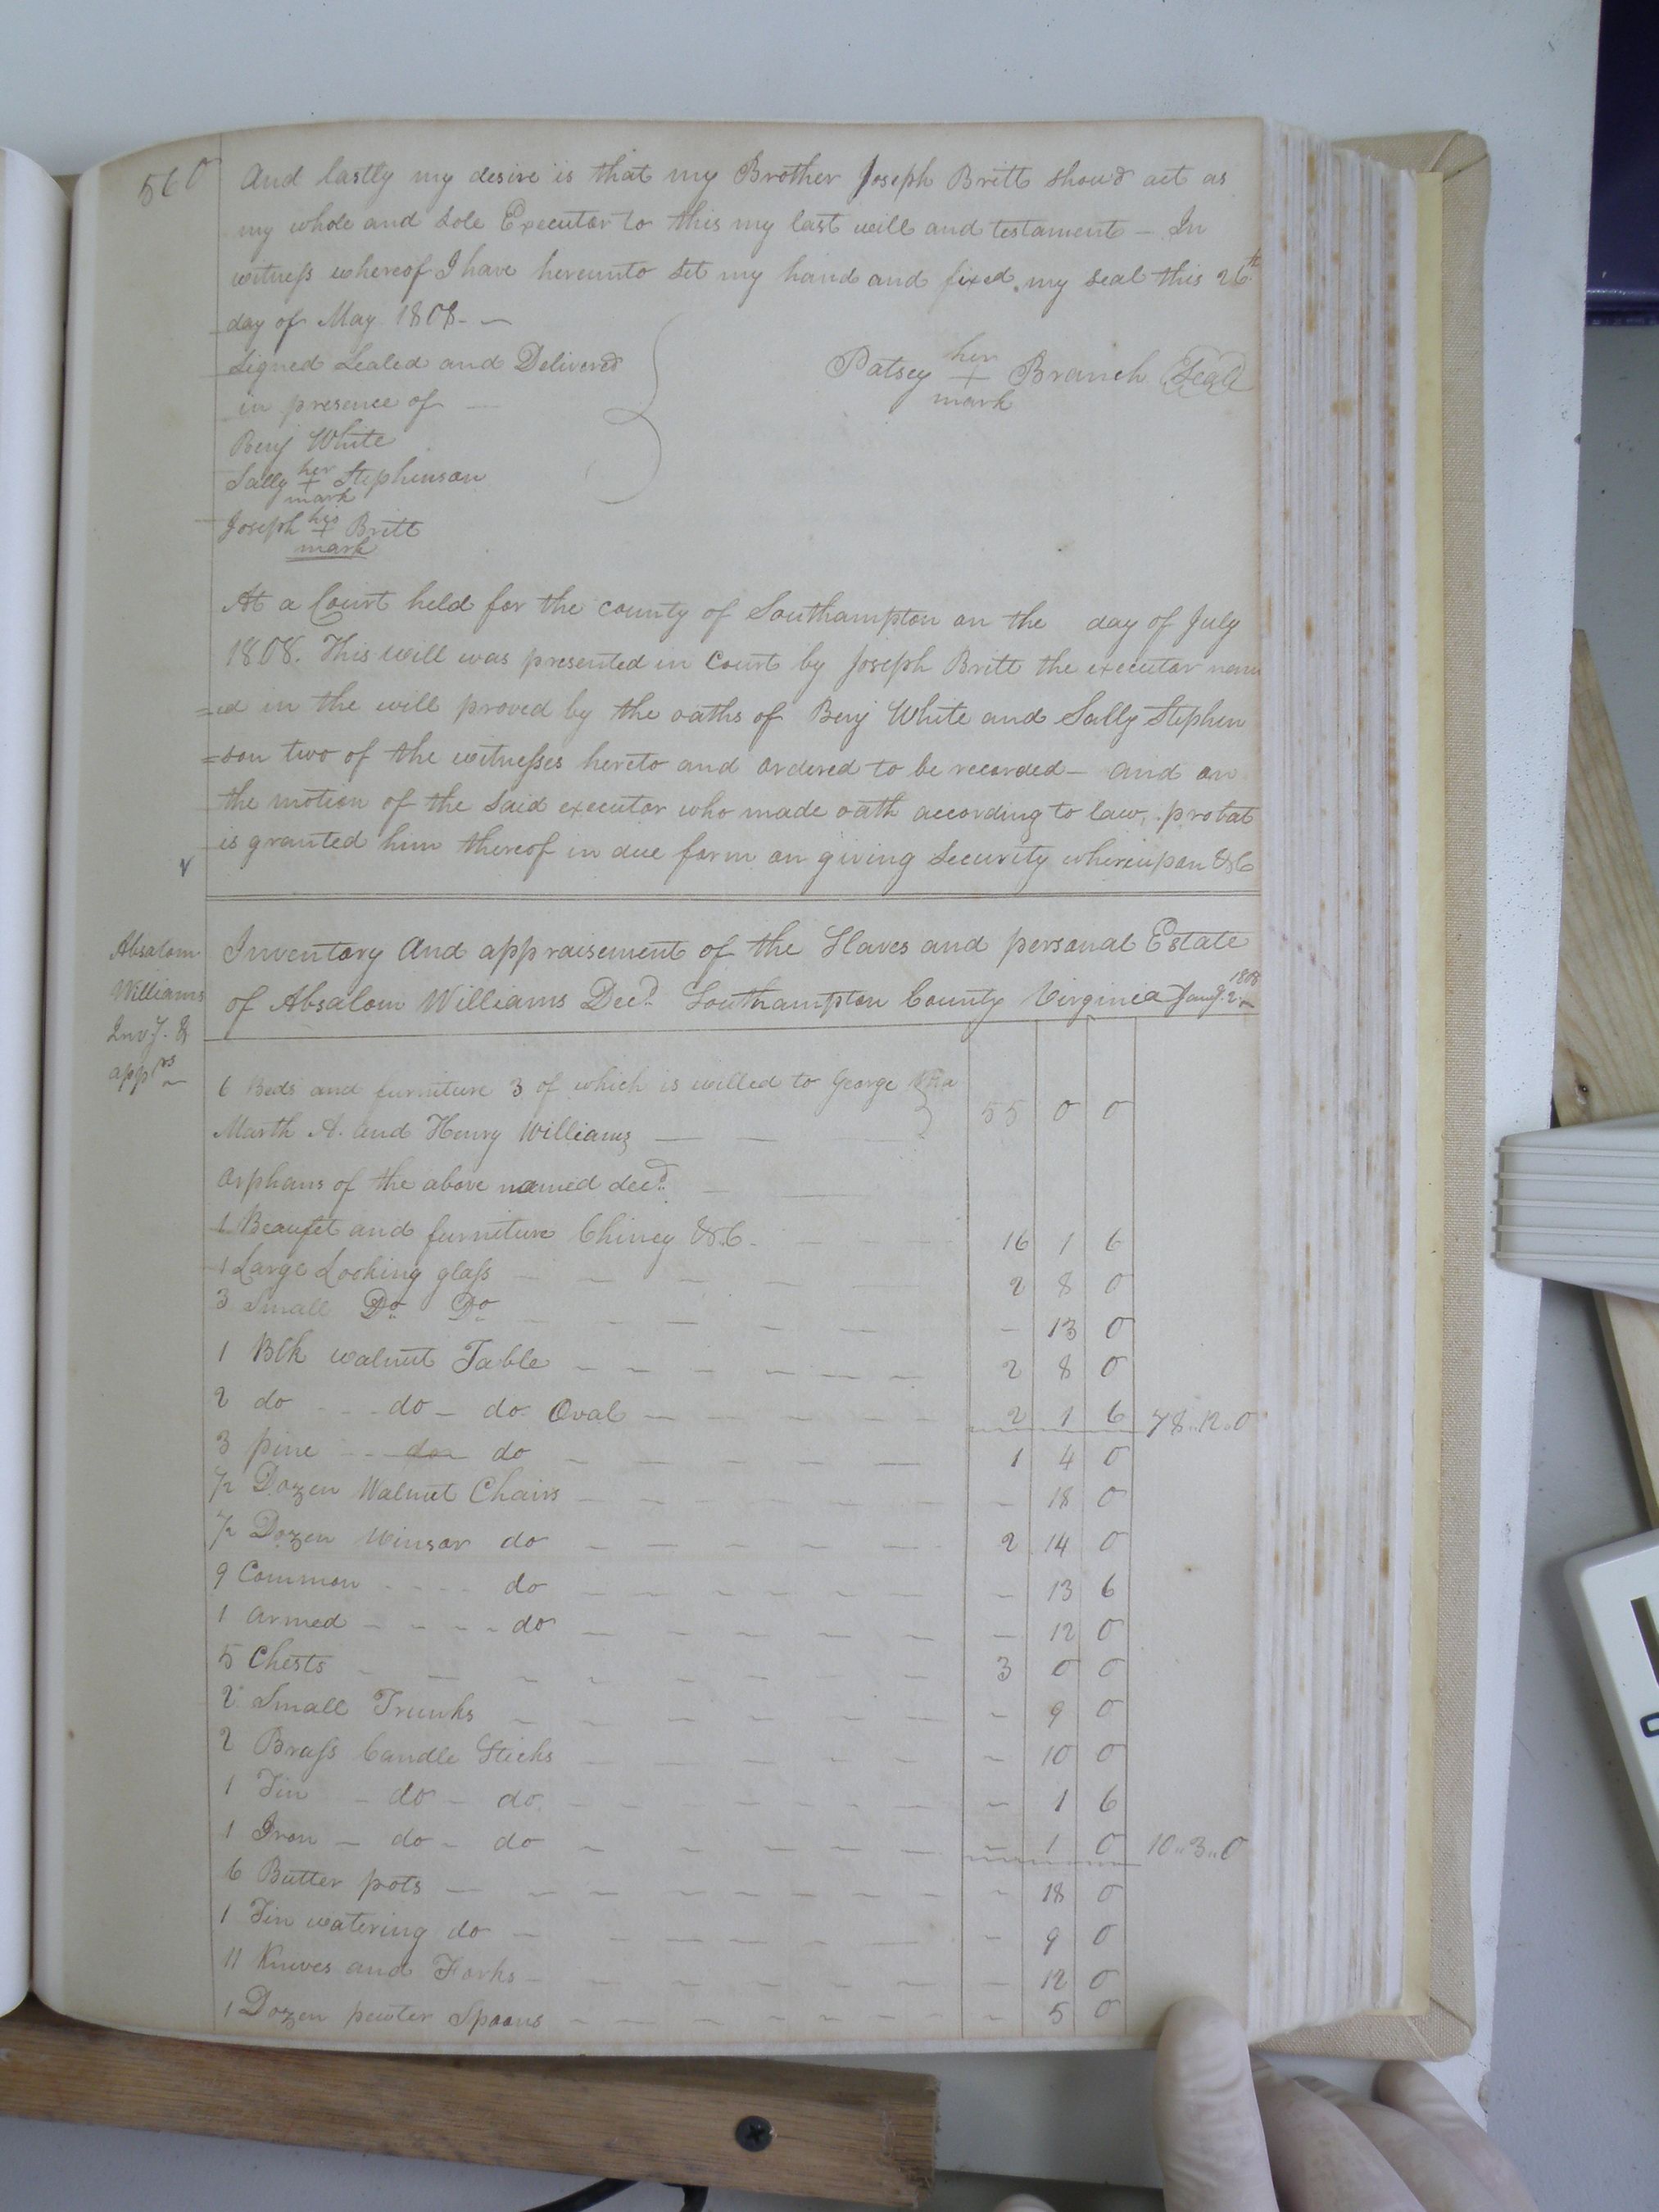 560
And lastly my desire is that my Brother Joseph Britt shoud act as
my whole and sole Executor to this my last will and testament – In
witness whereof I have hereunto set my hand and fixed my seal this 26th
day of May 1808 –
Signed Sealed and Delivered
in presence of –
Patsey her + mark Branch (Seal)
Benj White
Sally her + mark Stephenson
Joseph his + mark Britt
At a Court held for the county of Southampton on the day of July
1808. This will was presented in Court by Joseph Britt the executor nam
=ed in the will proved by the oaths of Benj White and Sally Stephen
=son two of the witnesses hereto and ordered to be recorded – and on
the motion of the said executor who made oath according to law, probat
is granted him thereof in due form on giving security whereupon &C
Absalom
Williams
Invy. &
apprs
Inventory And appraisement of the Slaves and personal Estate
of Absalom Williams Decd. Southampton County Virginia Jany. 2 1808
6 Beds and furniture 3 of which is willed to George
Marth A. and Henry Williams — — 55 0 0
Orphans of the above named decd. — —
1 Beaufet and furniture Chiney &C. 16 1 6
1 Large Looking glass 2 8 0
3 Small Do Do – 13 0
1 Blk walnut Table 2 8 0
2 do do – do Oval 2 1 6 78..12..0
3 pine do do 1 4 0
1/2 Dozen Walnut Chairs – 18 0
1/2 Dozen Winsor do 2 14 0
9 Common do – 13 6
1 armed do – 12 0
5 Chests 3 0 0
2 Small Trunks – 9 0
2 Brass Candle Sticks – 10 0
1 Tin – do – do – 1 6
1 Iron – do – do – 1 0 10..3..0
6 Butter pots – 18 0
1 Tin watering do – 9 0
11 Knives and Forks – 12 0
1 Dozen pewter Spoons – 5 0